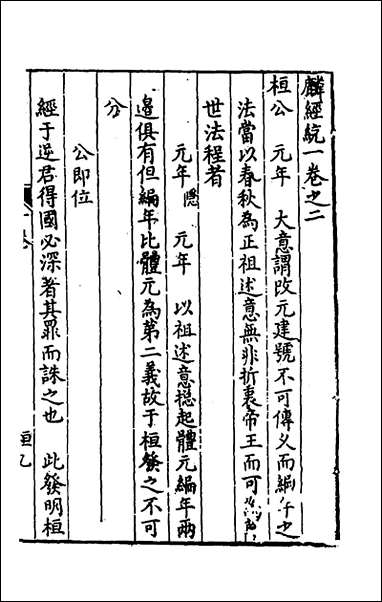 麟經統一卷之二
桓公　元年　大意謂改元建號不可傳乂而編年之
法當以春秋為正祖述意無非折衷帝王而可
世法程者
元年隱　元年　以祖述意捴起體元編年兩
邉俱有但編年比體元為第二義故于桓發之不可
分
公即位
經于逆君得國必深著其罪而誅之也　此發明桓
桓乙